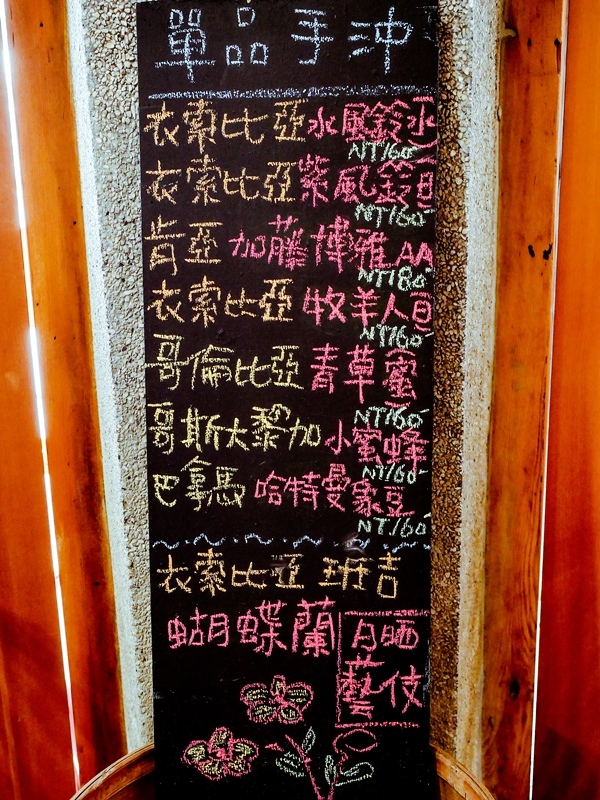 單品手沖
衣索比亞水風鈴水
NT160
衣索比亞紫風鈴日
NT160
肯亞 加藤博雅AA
NT180
衣索比亞 牧羊人日
NT160
哥倫比亞 青草蜜
NT160
哥斯大黎加 小蜜蜂
NT160
巴拿馬 哈特曼家豆
NT160
衣索比亞 班吉
蝴蝶蘭
日晒
藝伎